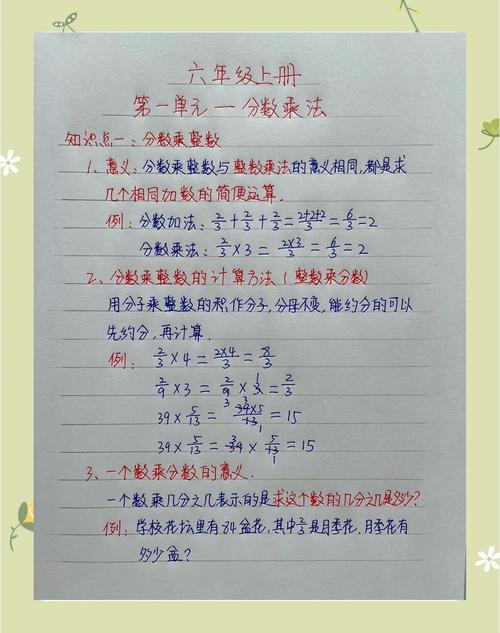 六年级上册
第一单元一分数乘法
知识点一：分数乘整数
1、意义：分数乘整数与整数乘法的意义相同，都是求
几个相同加数的简便运算。
例：分数加法：2/3+2/3+2/3=2+2+2/3=6/3=2
分数乘法：2/3×3=2×3/3=6/3=2
2、分数乘整数的计算方法（整数乘分数）
用分子乘整数的积作分子，分母不变，能约分的可以
先约分，再计算．
例：2/3×4=2×4/3=8/3
2/9×3=2/9 3×3 1=2/3
39×5/13=3 39×5/13 1=15
39×5/13=3 39×5/13 1=15
3、一个数乘分数的意义．
一个数乘几分之几表示的是求这个数的几分之几是多少？
例：学校花坛里有84盆花，其中2/3是月季花．月季花有
多少盆？